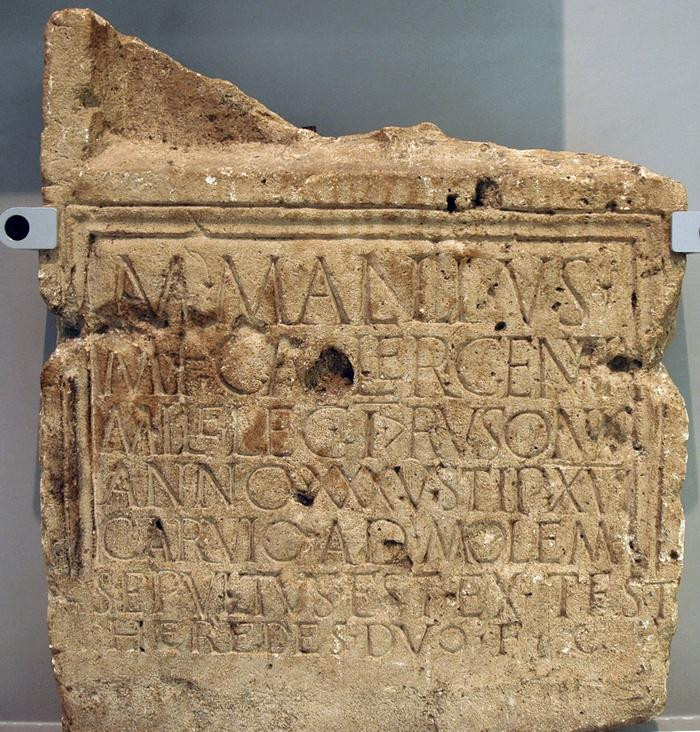 M·MALLIVS·
M·F·GALER·GENVA
MIL·LEG·I·>·RVSONIS
ANNO·XXXV·STIP·XVI
CARVIO·AD·MOLEM
SEPVLTVS·EST·EX·TEST
HEREDES·DVO·F·C